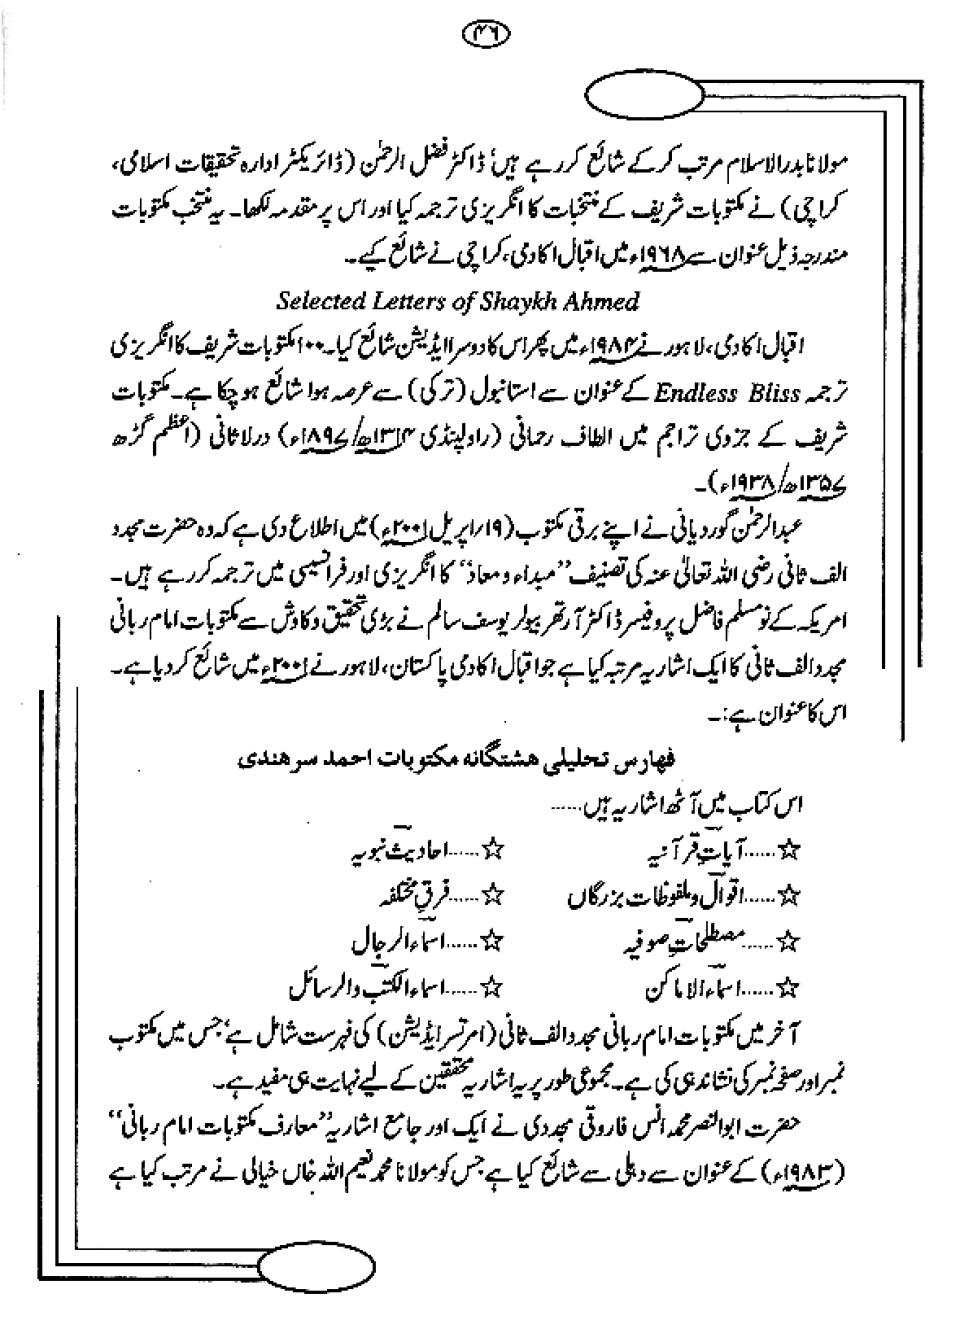 ۳۶
مولانا بدرالاسلام مرتب کرکے شائع کر رہے ہیں' ڈاکٹر فضل الرحمٰن (ڈائریکٹر ادارہ تحقیقات اسلامی،
کراچی) نے مکتوبات شریف کے منتخبات کا انگریزی ترجمہ کیا اور اس پر مقدمہ لکھا۔ یہ منتخب مکتوبات
مندرجہ ذیل عنوان سے ۱۹۶۸ء میں اقبال اکادمی، کراچی نے شائع کیے۔
Selected Letters of Shaykh Ahmed
اقبال اکادمی، لاہور نے ۱۹۸۴ء میں پھر اس کا دوسرا ایڈیشن شائع کیا۔ ۱۰۰ مکتوبات شریف کا انگریزی
ترجمہ Endless Bliss کے عنوان سے استانبول (ترکی) سے عرصہ ہوا شائع ہو چکا ہے۔ مکتوبات
شریف کے جزوی تراجم میں الطاف رحمانی (راولپنڈی ۱۳۱۴ھ/۱۸۹۷ء) درلاثانی (اعظم گڑھ
۱۳۵۷ھ/۱۹۳۸ء)۔
عبدالرحمٰن گوردیانی نے اپنے برقی مکتوب (۱۹/اپریل ۲۰۰۱ء) میں اطلاع دی ہے کہ وہ حضرت مجدد
الف ثانی رضی اللہ تعالیٰ عنہ کی تصنیف ”مبداء و معاد“ کا انگریزی اور فرانسیسی میں ترجمہ کر رہے ہیں۔
امریکہ کے نومسلم فاضل پروفیسر ڈاکٹر آرتھر بیولر یوسف سالم نے بڑی تحقیق و کاوش سے مکتوبات امام ربانی
مجدد الف ثانی کا ایک اشاریہ مرتبہ کیا ہے جو اقبال اکادمی پاکستان، لاہور نے ۲۰۰۱ء میں شائع کر دیا ہے۔
اس کا عنوان ہے:۔
فہارس تحلیلی ھشتگانہ مکتوبات احمد سرھندی
اس کتاب میں آٹھ اشاریہ ہیں......
☆......آیاتِ قرآنیہ ☆......احادیث نبویہ
☆......اقوال و ملفوظات بزرگاں ☆......فرقِ مختلفہ
☆......مصطلحاتِ صوفیہ ☆......اسماء الرجال
☆......اسماء الاماکن ☆......اسماء الکتب والرسائل
آخر میں مکتوبات امام ربانی مجدد الف ثانی (امرتسر ایڈیشن) کی فہرست شامل ہے' جس میں مکتوب
نمبر اور صفحہ نمبر کی نشاندہی کی ہے۔ مجموعی طور پر یہ اشاریہ محققین کے لیے نہایت ہی مفید ہے۔
حضرت ابوالنصر محمد انس فاروقی مجددی نے ایک اور جامع اشاریہ ”معارف مکتوبات امام ربانی“
(۱۹۸۳ء) کے عنوان سے دہلی سے شائع کیا ہے جس کو مولانا محمد نعیم اللہ خاں خیالی نے مرتب کیا ہے